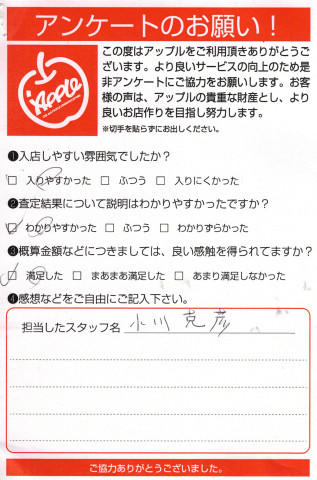 アンケートのお願い！
この度はアップルをご利用頂きありがとうございます。より良いサービスの向上のため是非アンケートにご協力をお願いします。お客様の声は、アップルの貴重な財産とし、より良いお店作りを目指し努力します。
※切手を貼らずにお出しください。
Apple
❶入店しやすい雰囲気でしたか？
□ 入りやすかった □ ふつう □ 入りにくかった
❷査定結果について説明はわかりやすかったですか？
□ わかりやすかった □ ふつう □ わかりずらかった
❸概算金額などにつきましては、良い感触を得られてますか？
□ 満足した □ まあまあ満足した □ あまり満足しなかった
❹感想などをご自由にご記入下さい。
担当したスタッフ名 小川 克彦
ご協力ありがとうございました。